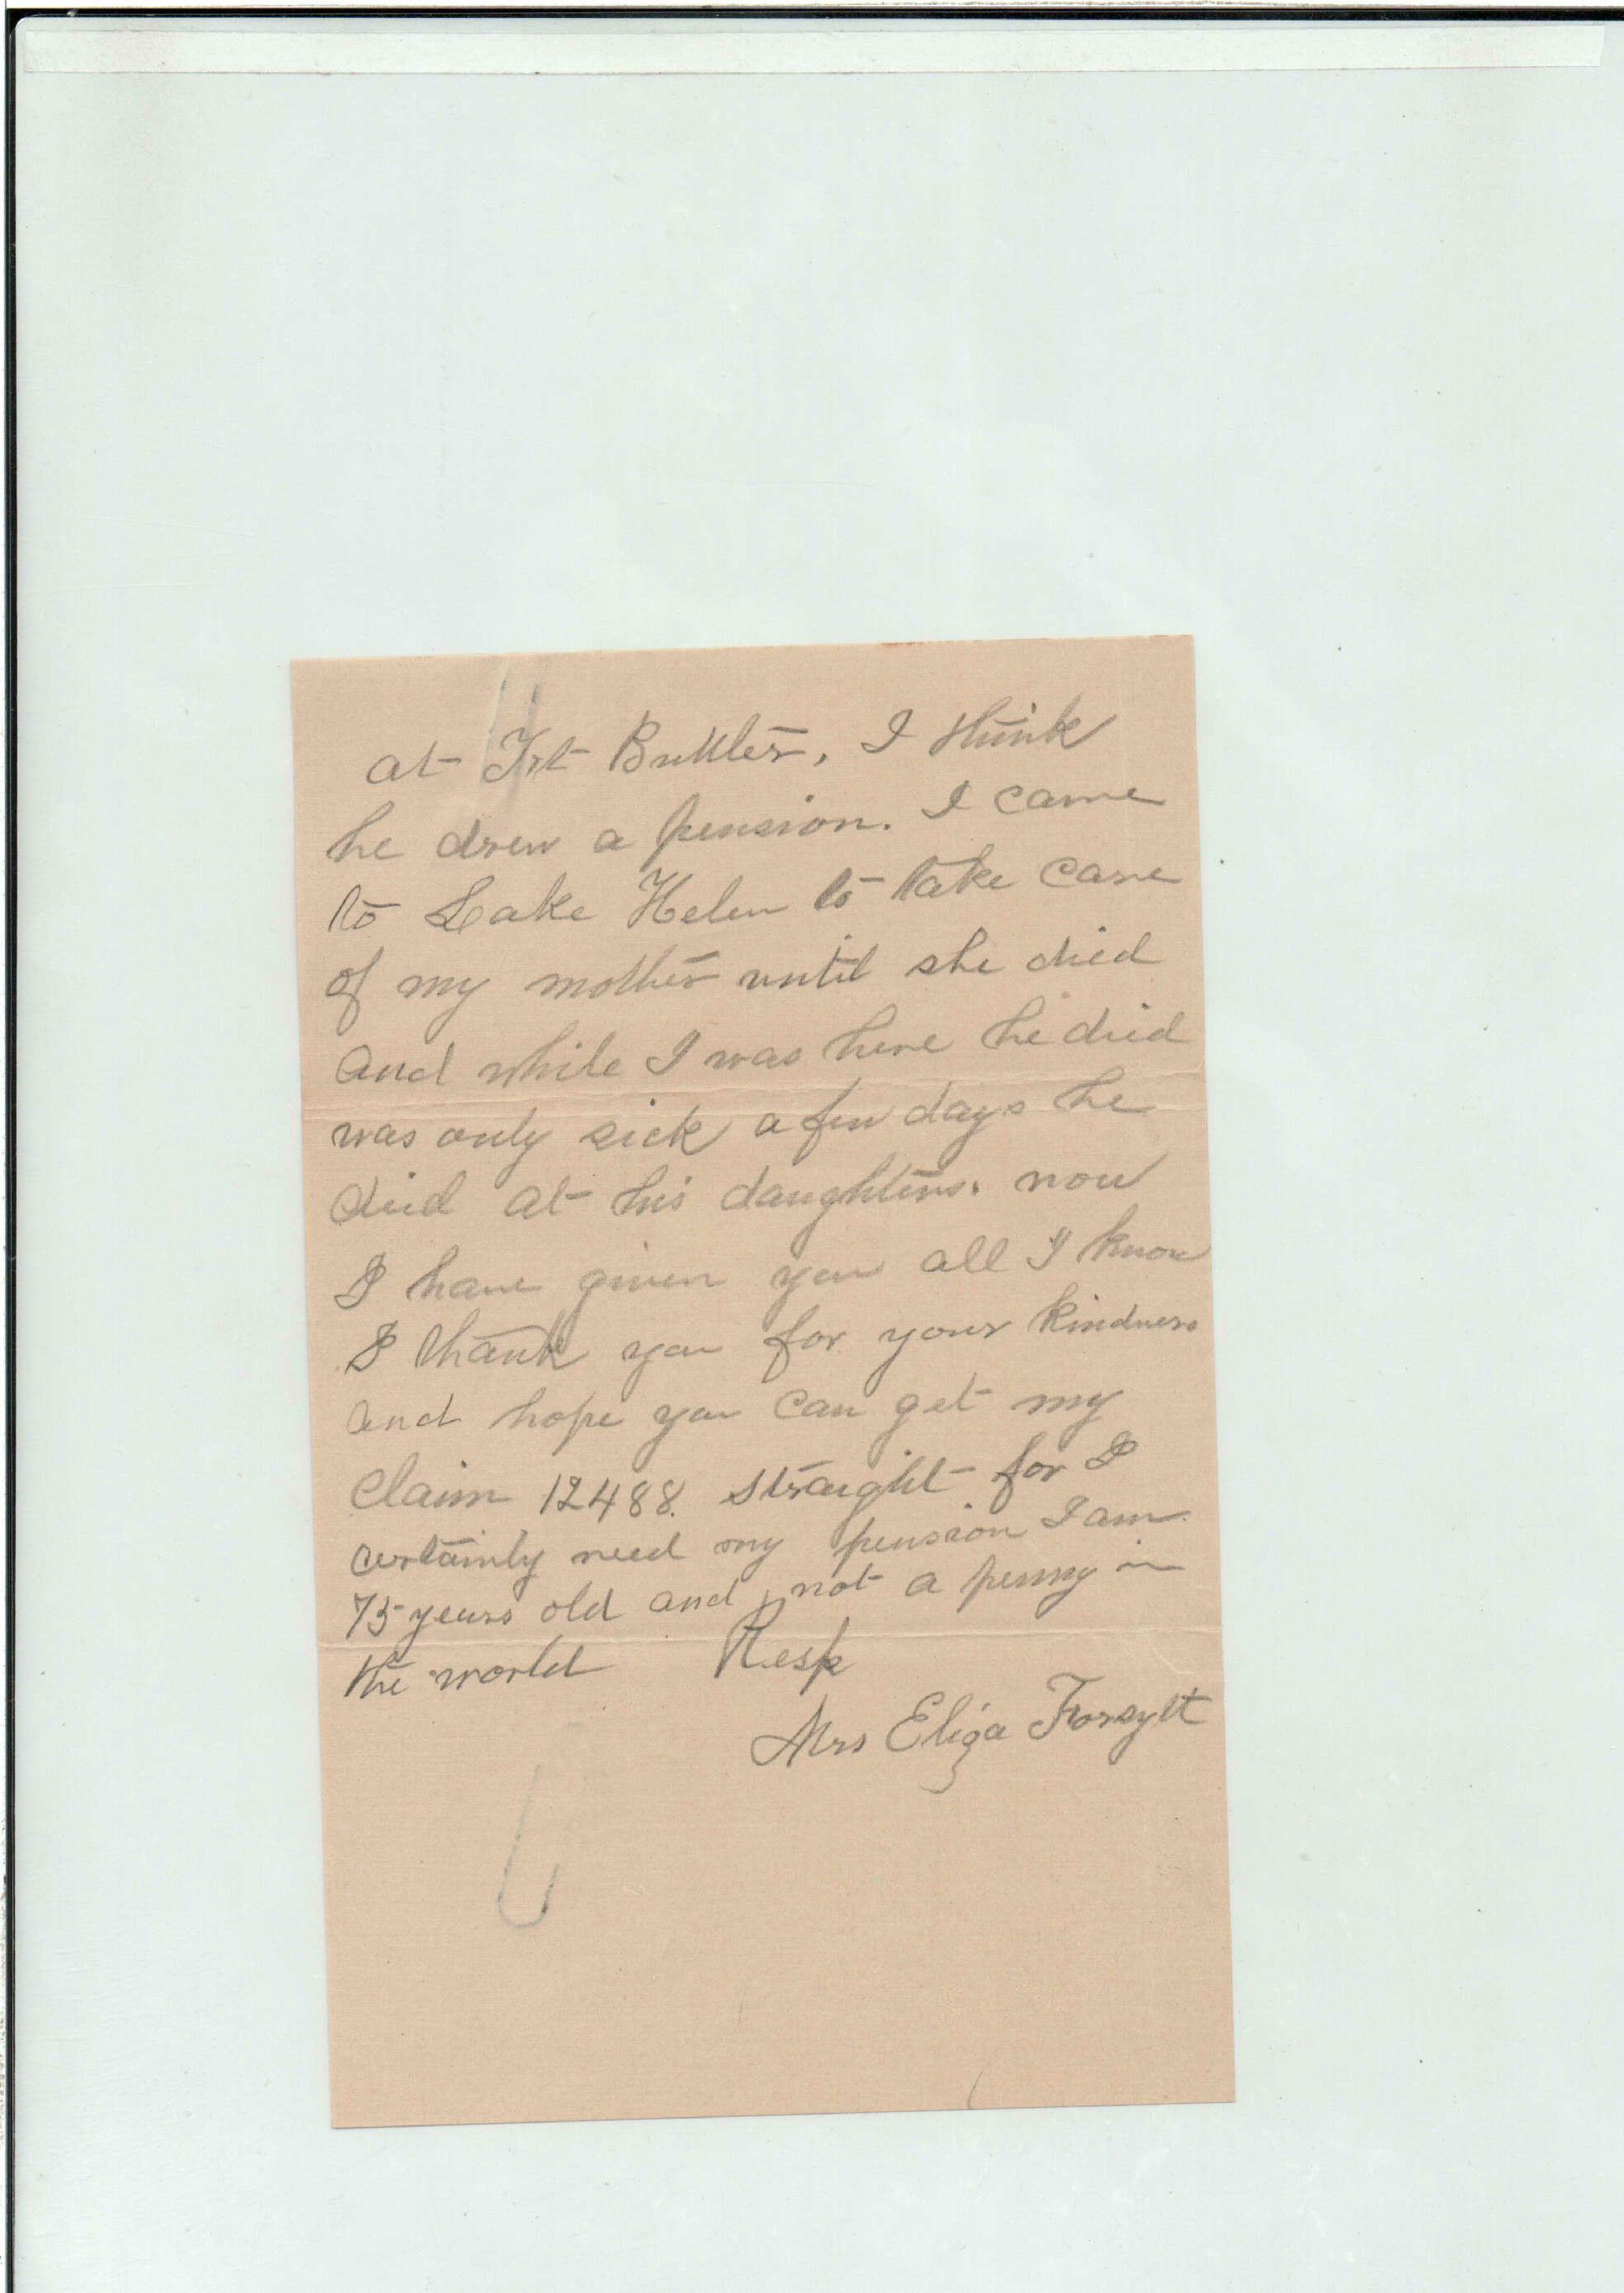 at Frt Buttler, I think
he drew a pension. I came
to Lake Helen to take care
of my mother until she died
and while I was here he died
was only sick a few days he
died at his daughters. now
I have given you all I know
I thank you for your kindness
and hope you can get my
claim 12488. straight for I
certainly need my pension I am
75 years old and not a penny in
the world Resp
Mrs Eliza Forsyth